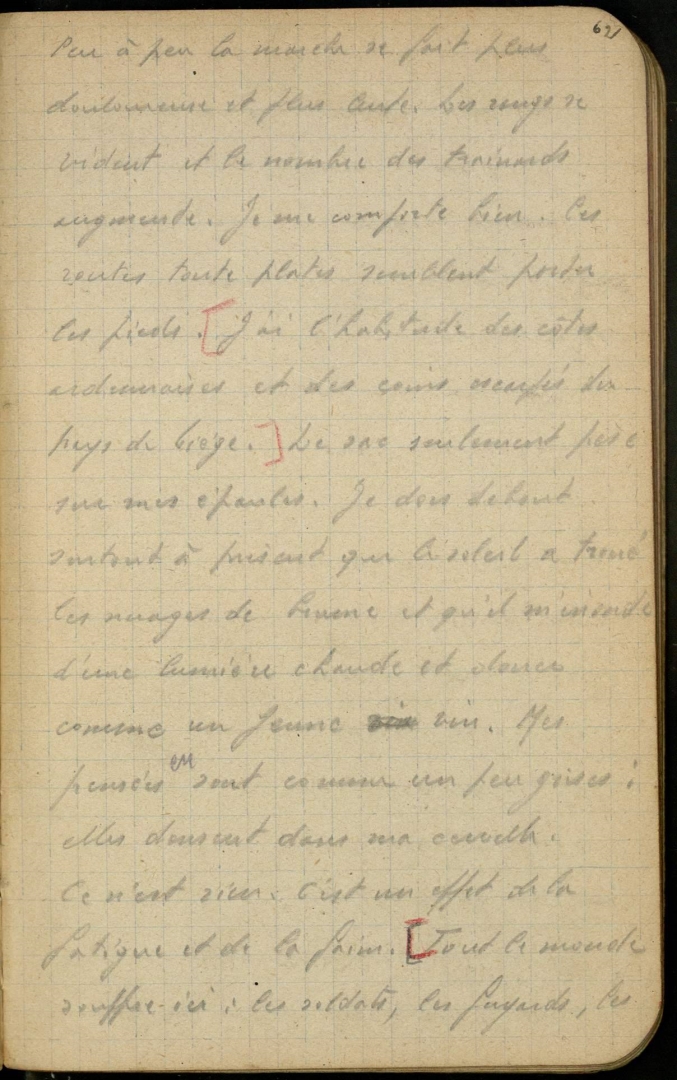 621
Peu à peu la marche se fait plus
douloureuse et plus lente. Les rangs se
vident et le nombre des trainards
augmente. Je me comporte bien. Les
routes toute plates semblent porter
les pieds. [J'ai l'habitude des côtes
ardennaises et des coins escarpés du
pays de Liége.] Le sac seulement pèse
sur mes épaules. Je dors debout
surtout à présent que le soleil a troué
les nuages de brume et qu'il m'inonde
d'une lumière chaude et douce
comme un jeune vin. Mes
pensées en sont comme un peu grises ;
elles dansent dans ma cervelle.
Ce n'est rien. C'est un effet de la
fatigue et de la faim. [Tout le monde
souffre ici : les soldats, les fuyards, les